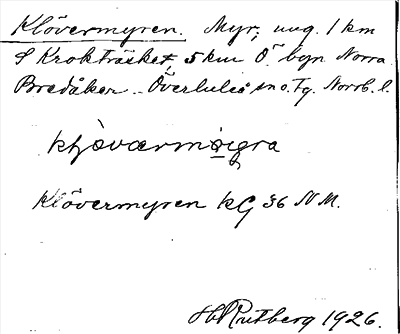 Klövermyren. Myr, ung. 1 km
S Krokträsket, 5 km Ö byn Norra
Bredåker. Överluleå sn o. tg. Norrb. l.
Klövermyren kG 36 NM.
H Rutberg 1926.